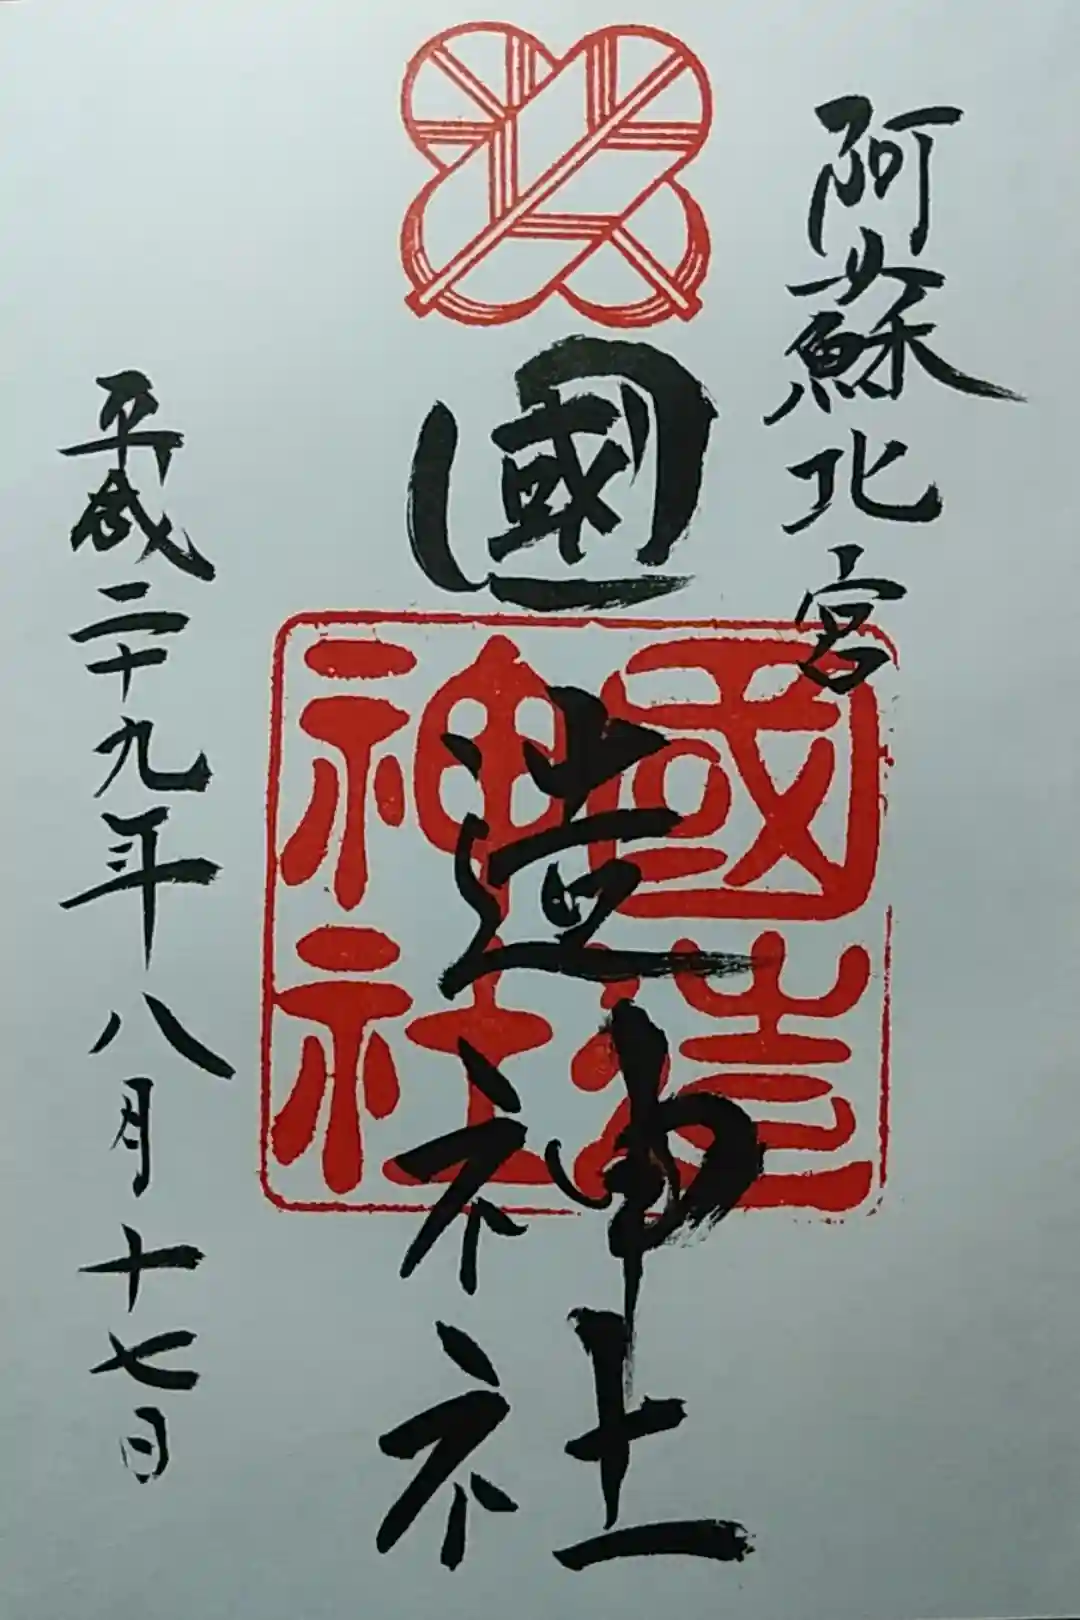 阿蘇北宮
國造神社
國造
神社
平成二十九年八月十七日